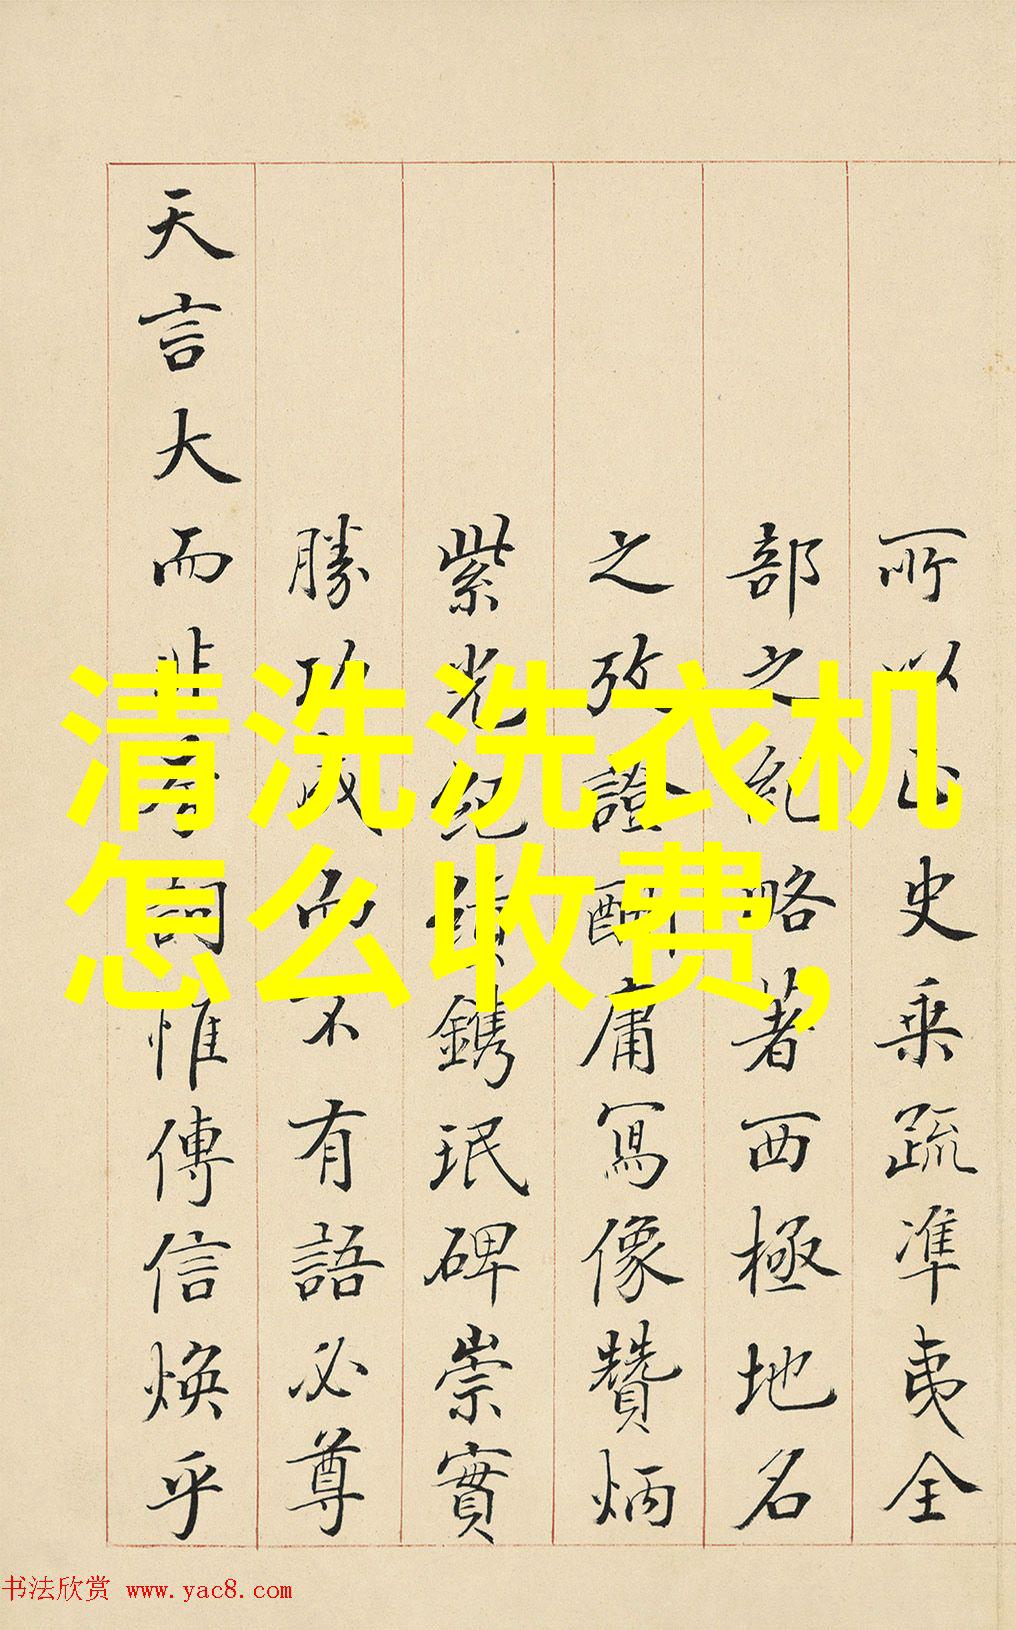 清洗洗衣机
怎么收费,
所以正史乘疏凖夷全
部之紀略著西極地名
之攷證酬庸寫像贊炳
紫光紀績鐫珉碑崇實
勝功成而不有語必尊
天言大而非夸詞惟傳信煥乎
书法欣赏 www.yac8.com